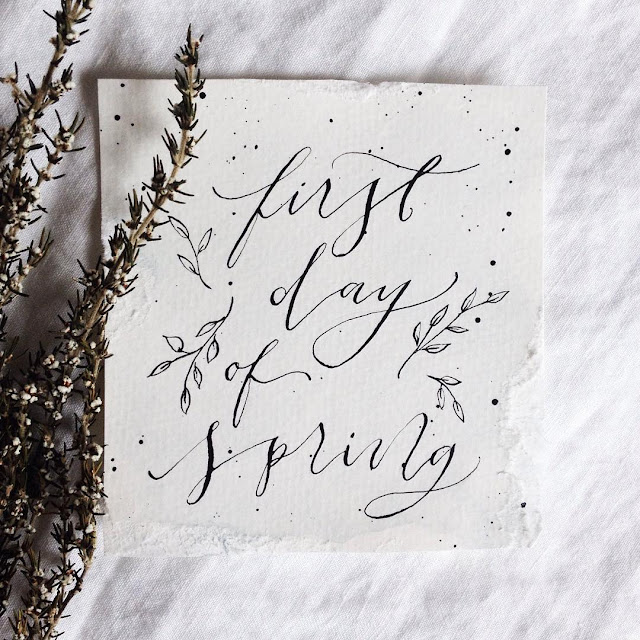 first
day
of
spring